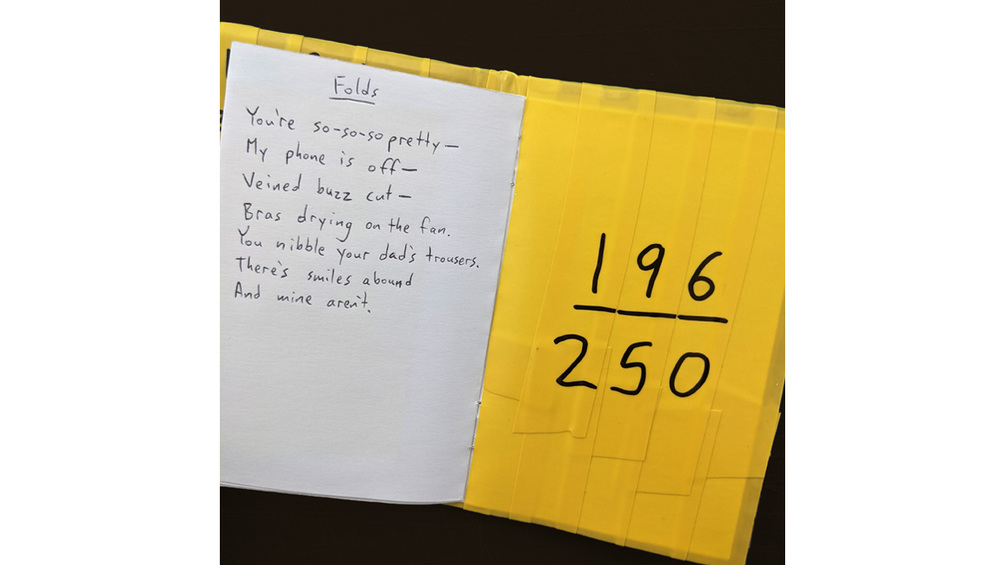 Folds
You're so-so-so pretty—
My phone is off—
Veined buzz cut—
Bras drying on the fan.
You nibble your dad's trousers.
There's smiles abound
And mine aren't.
196
250